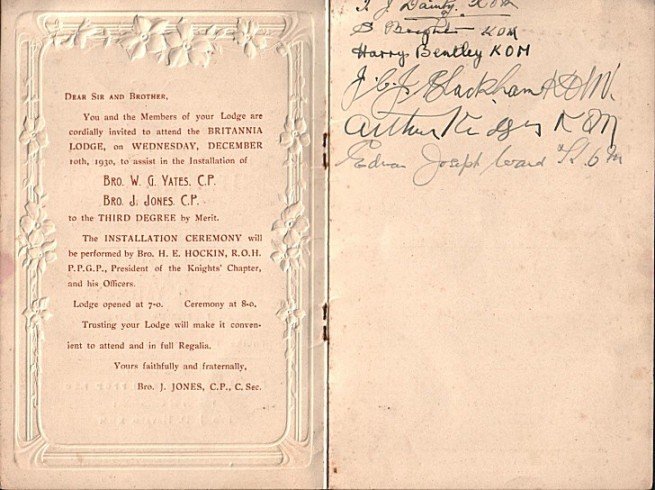 DEAR SIR AND BROTHER,
You and the Members of your Lodge are
cordially invited to attend the BRITANNIA
LODGE, on WEDNESDAY, DECEMBER
10th, 1930, to assist in the Installation of
BRO. W. G. YATES, C.P.
BRO. J. JONES, C.P.
to the THIRD DEGREE by Merit.
The INSTALLATION CEREMONY will
be performed by Bro. H. E. HOCKIN, R.O.H.
P.P.G.P., President of the Knights' Chapter,
and his Officers.
Lodge opened at 7-0. Ceremony at 8-0.
Trusting your Lodge will make it conven-
ient to attend and in full Regalia.
Yours faithfully and fraternally,
Bro. J. JONES, C.P., C. Sec.
J Dainty KOM
S Bright KOM
Harry Bentley KOM
Blackham KOM.
Arthur Kidgus KOM
Joseph Ward K O M